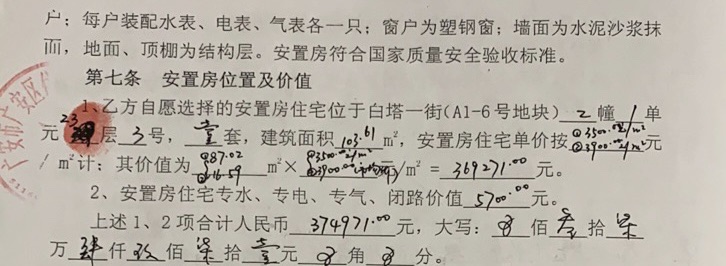 户；每户装配水表、电表、气表各一只；窗户为塑钢窗；墙面为水泥沙浆抹
而，地面、顶棚为结构层。安置房符合国家质量安全验收标准。
第七条 安置房位置及价值
1、乙方自愿选择的安置房住宅位于白塔一街(A1-6号地块) 2 幢 1 单
元 23 层 3 号， 壹 套，建筑面积 103.61 m²，安置房住宅单价按 ①3500.00/m² ②3900.00/m² 元
/m²计：其价值为 ①87.02 ②16.59 m²× ①3500.00/m² ②3900.00 元/m² = 369271.00 元。
2、安置房住宅专水、专电、专气、闭路价值 5700.00 元。
上述1、2项合计人民币 374971.00 元，大写： 佰 叁 拾 柒
万 肆 仟 玖 佰 柒 拾 壹 元 角 分。
广安市广安区